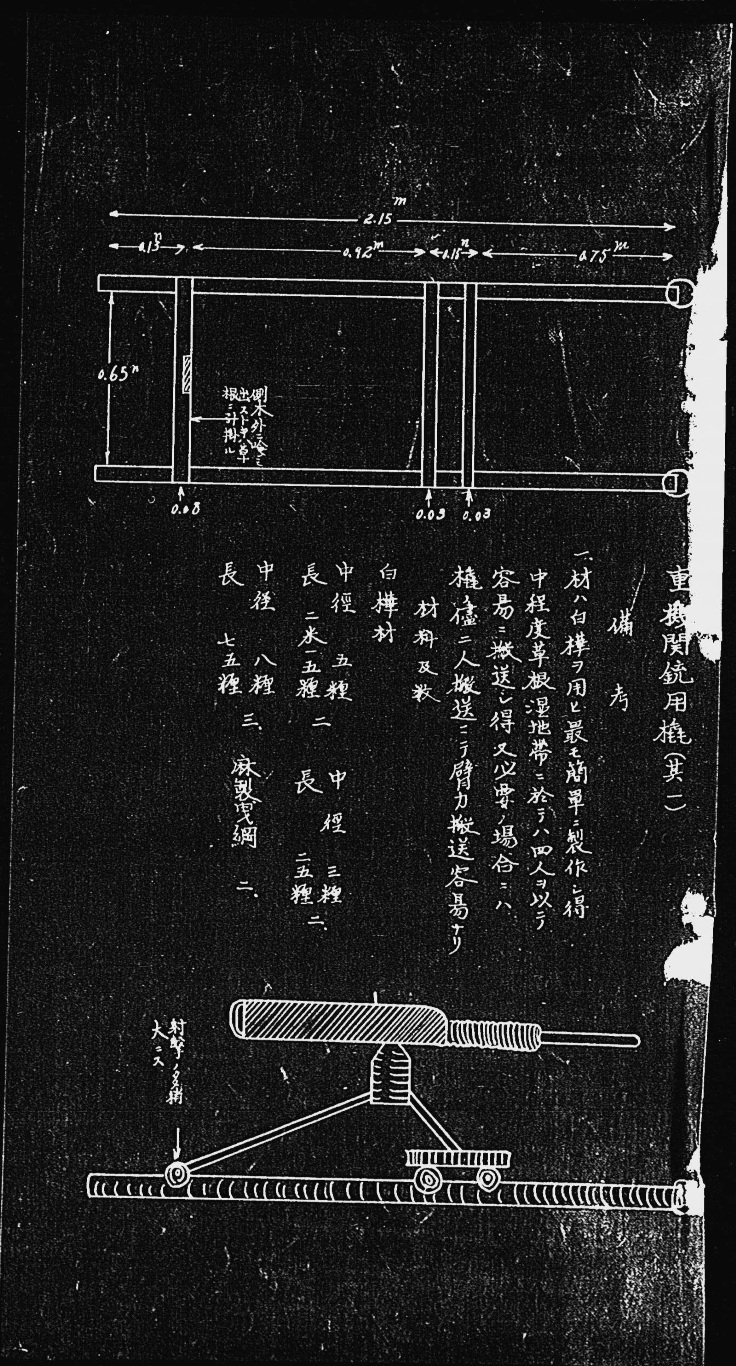 2.15m
0.92m
0.75m
0.65m
0.08
0.03
0.03
重機関銃用橇(其一)
備考
一、材ハ白樺ヲ用ヒ最モ簡単ニ製作シ得
中程度草根湿地帯ニ於テハ四人ヲ以テ
容易ニ搬送シ得又必要ノ場合ニハ
橇ノ儘二人搬送ニテ臂力搬送容易ナリ
材料及数
白樺材
中徑 五糎
長 二米一五糎 二
中徑 三糎
長 二五糎 二、
中径 八糎
長 七五糎 三、
麻製曳綱 二、
射撃ノ為
大ニス